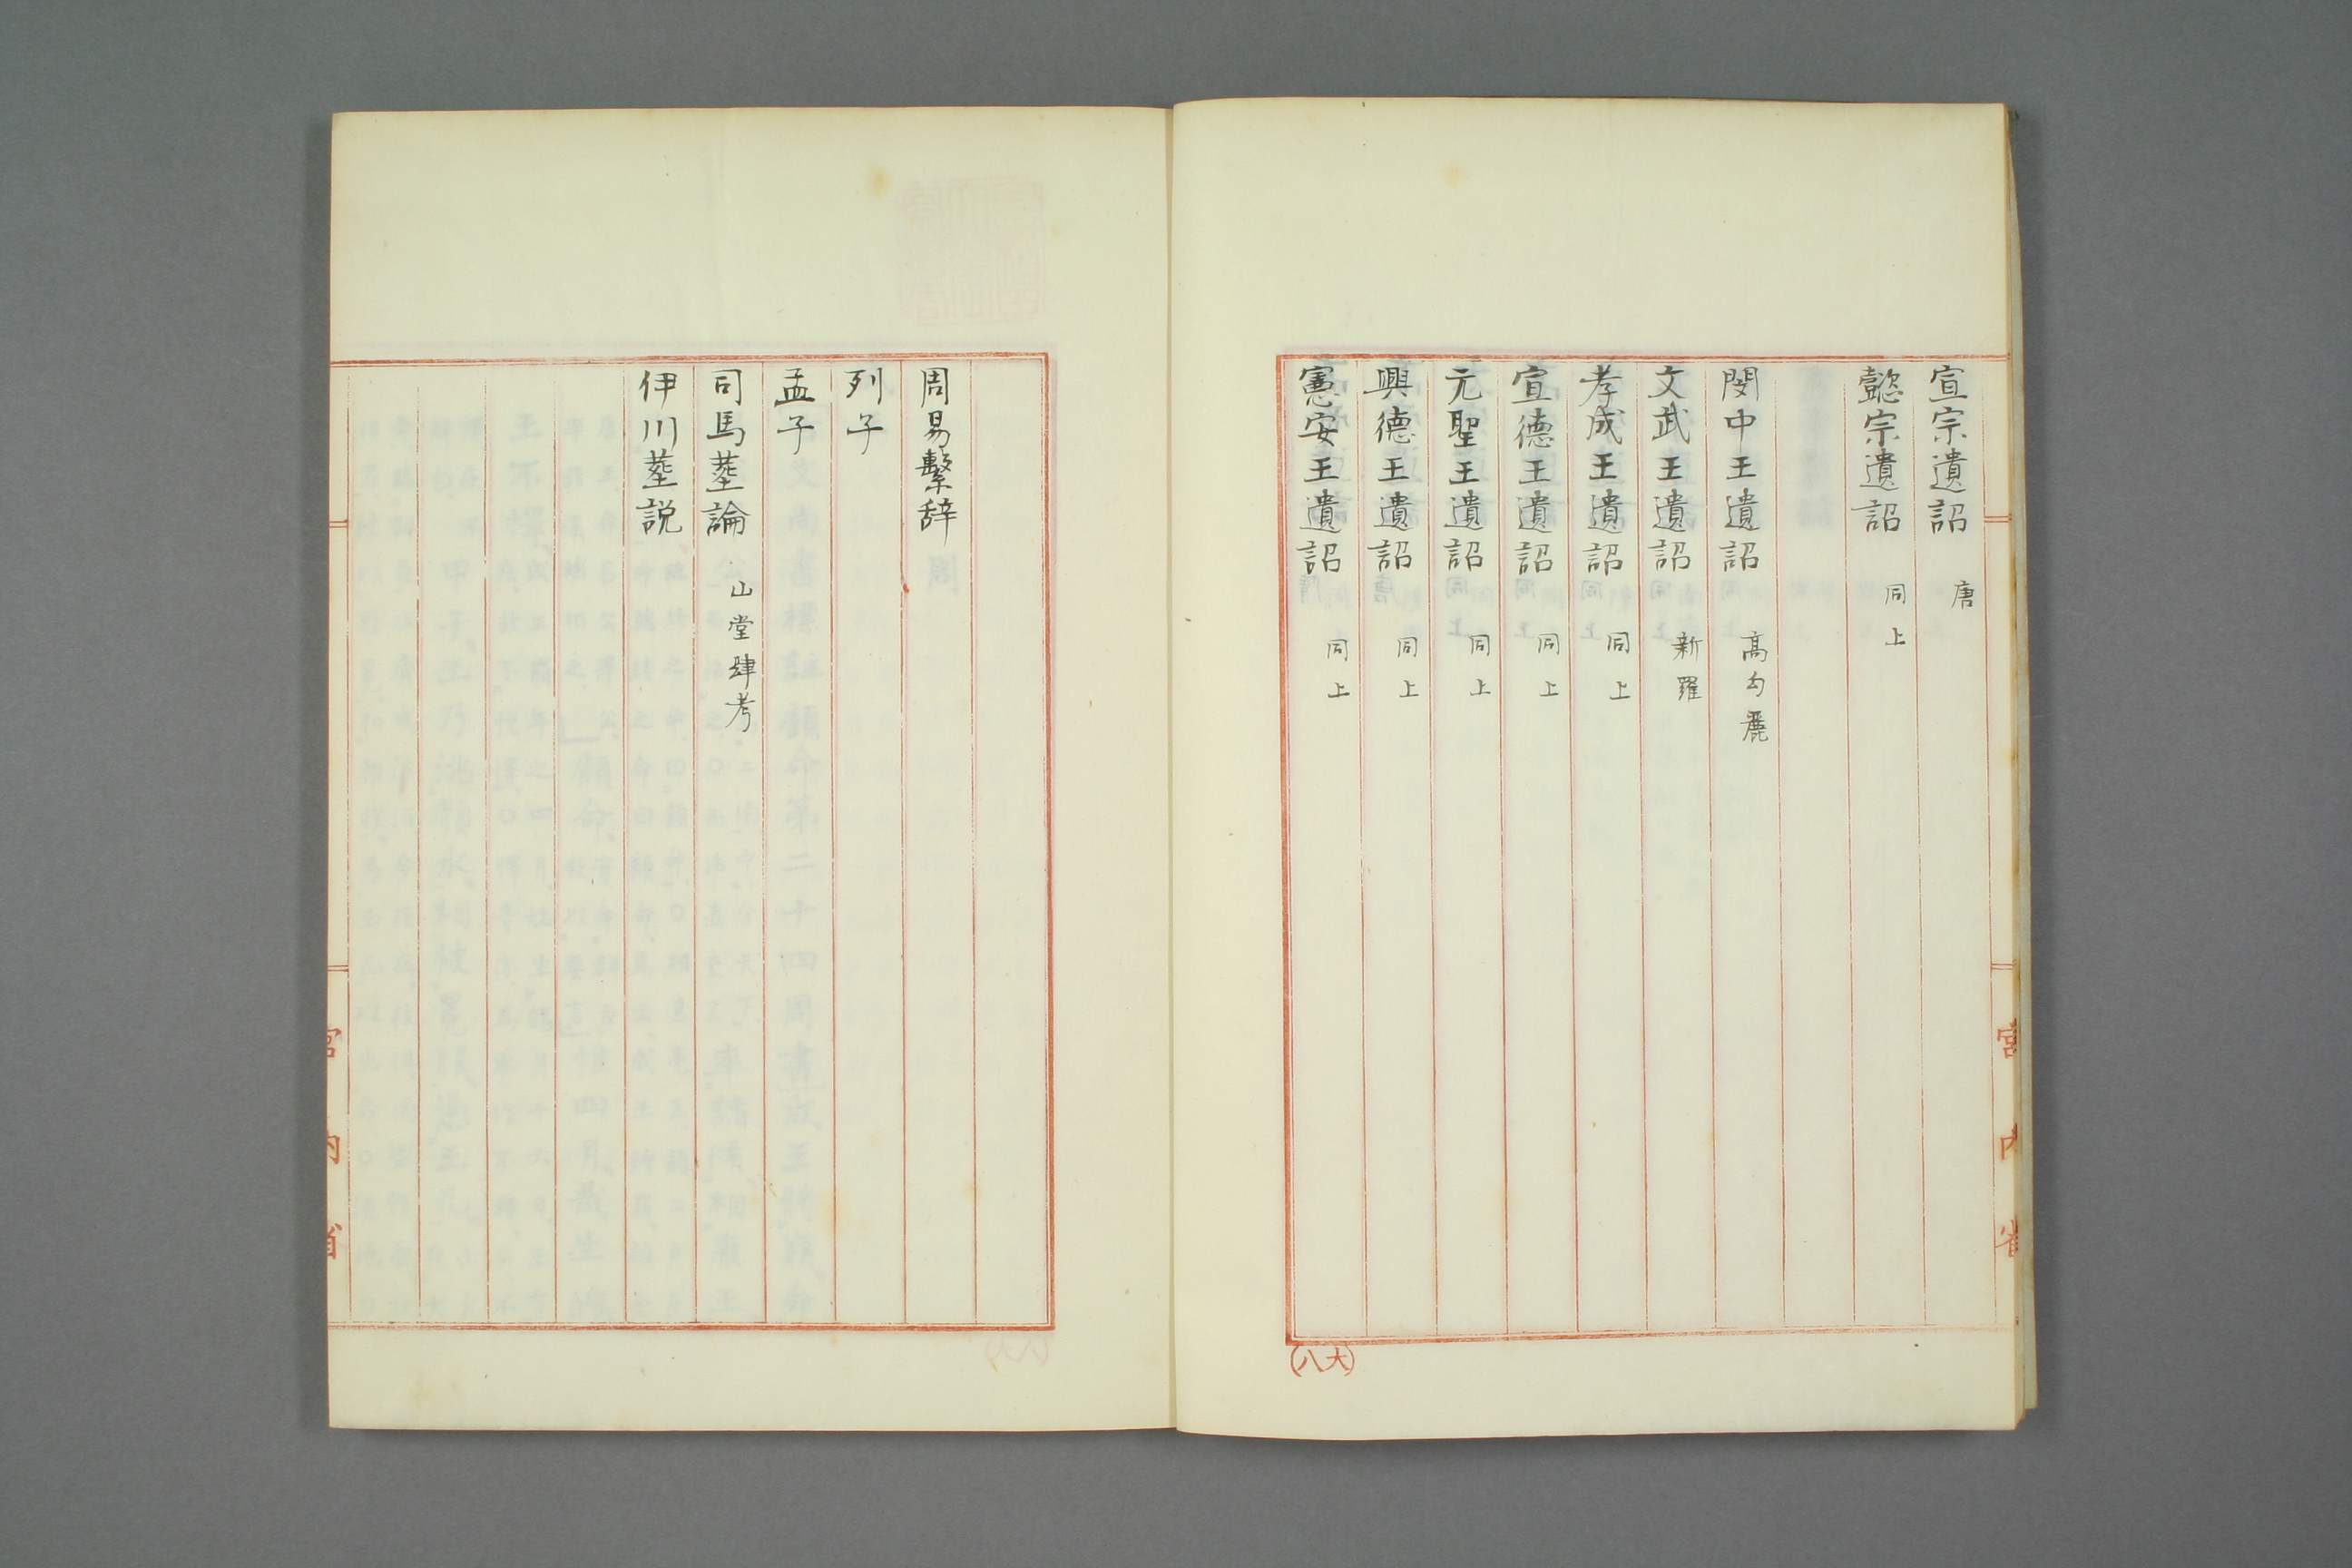 宣宗遺詔 唐
懿宗遺詔 同上
閔中王遺詔 高勾麗
文武王遺詔 新羅
孝成王遺詔 同上
宣德王遺詔 同上
元聖王遺詔 同上
興德王遺詔 同上
憲安王遺詔 同上
宮内省
(大八)
周易繫辞
列子
孟子
司馬塟論 山堂肆考
伊川塟説
宮内省